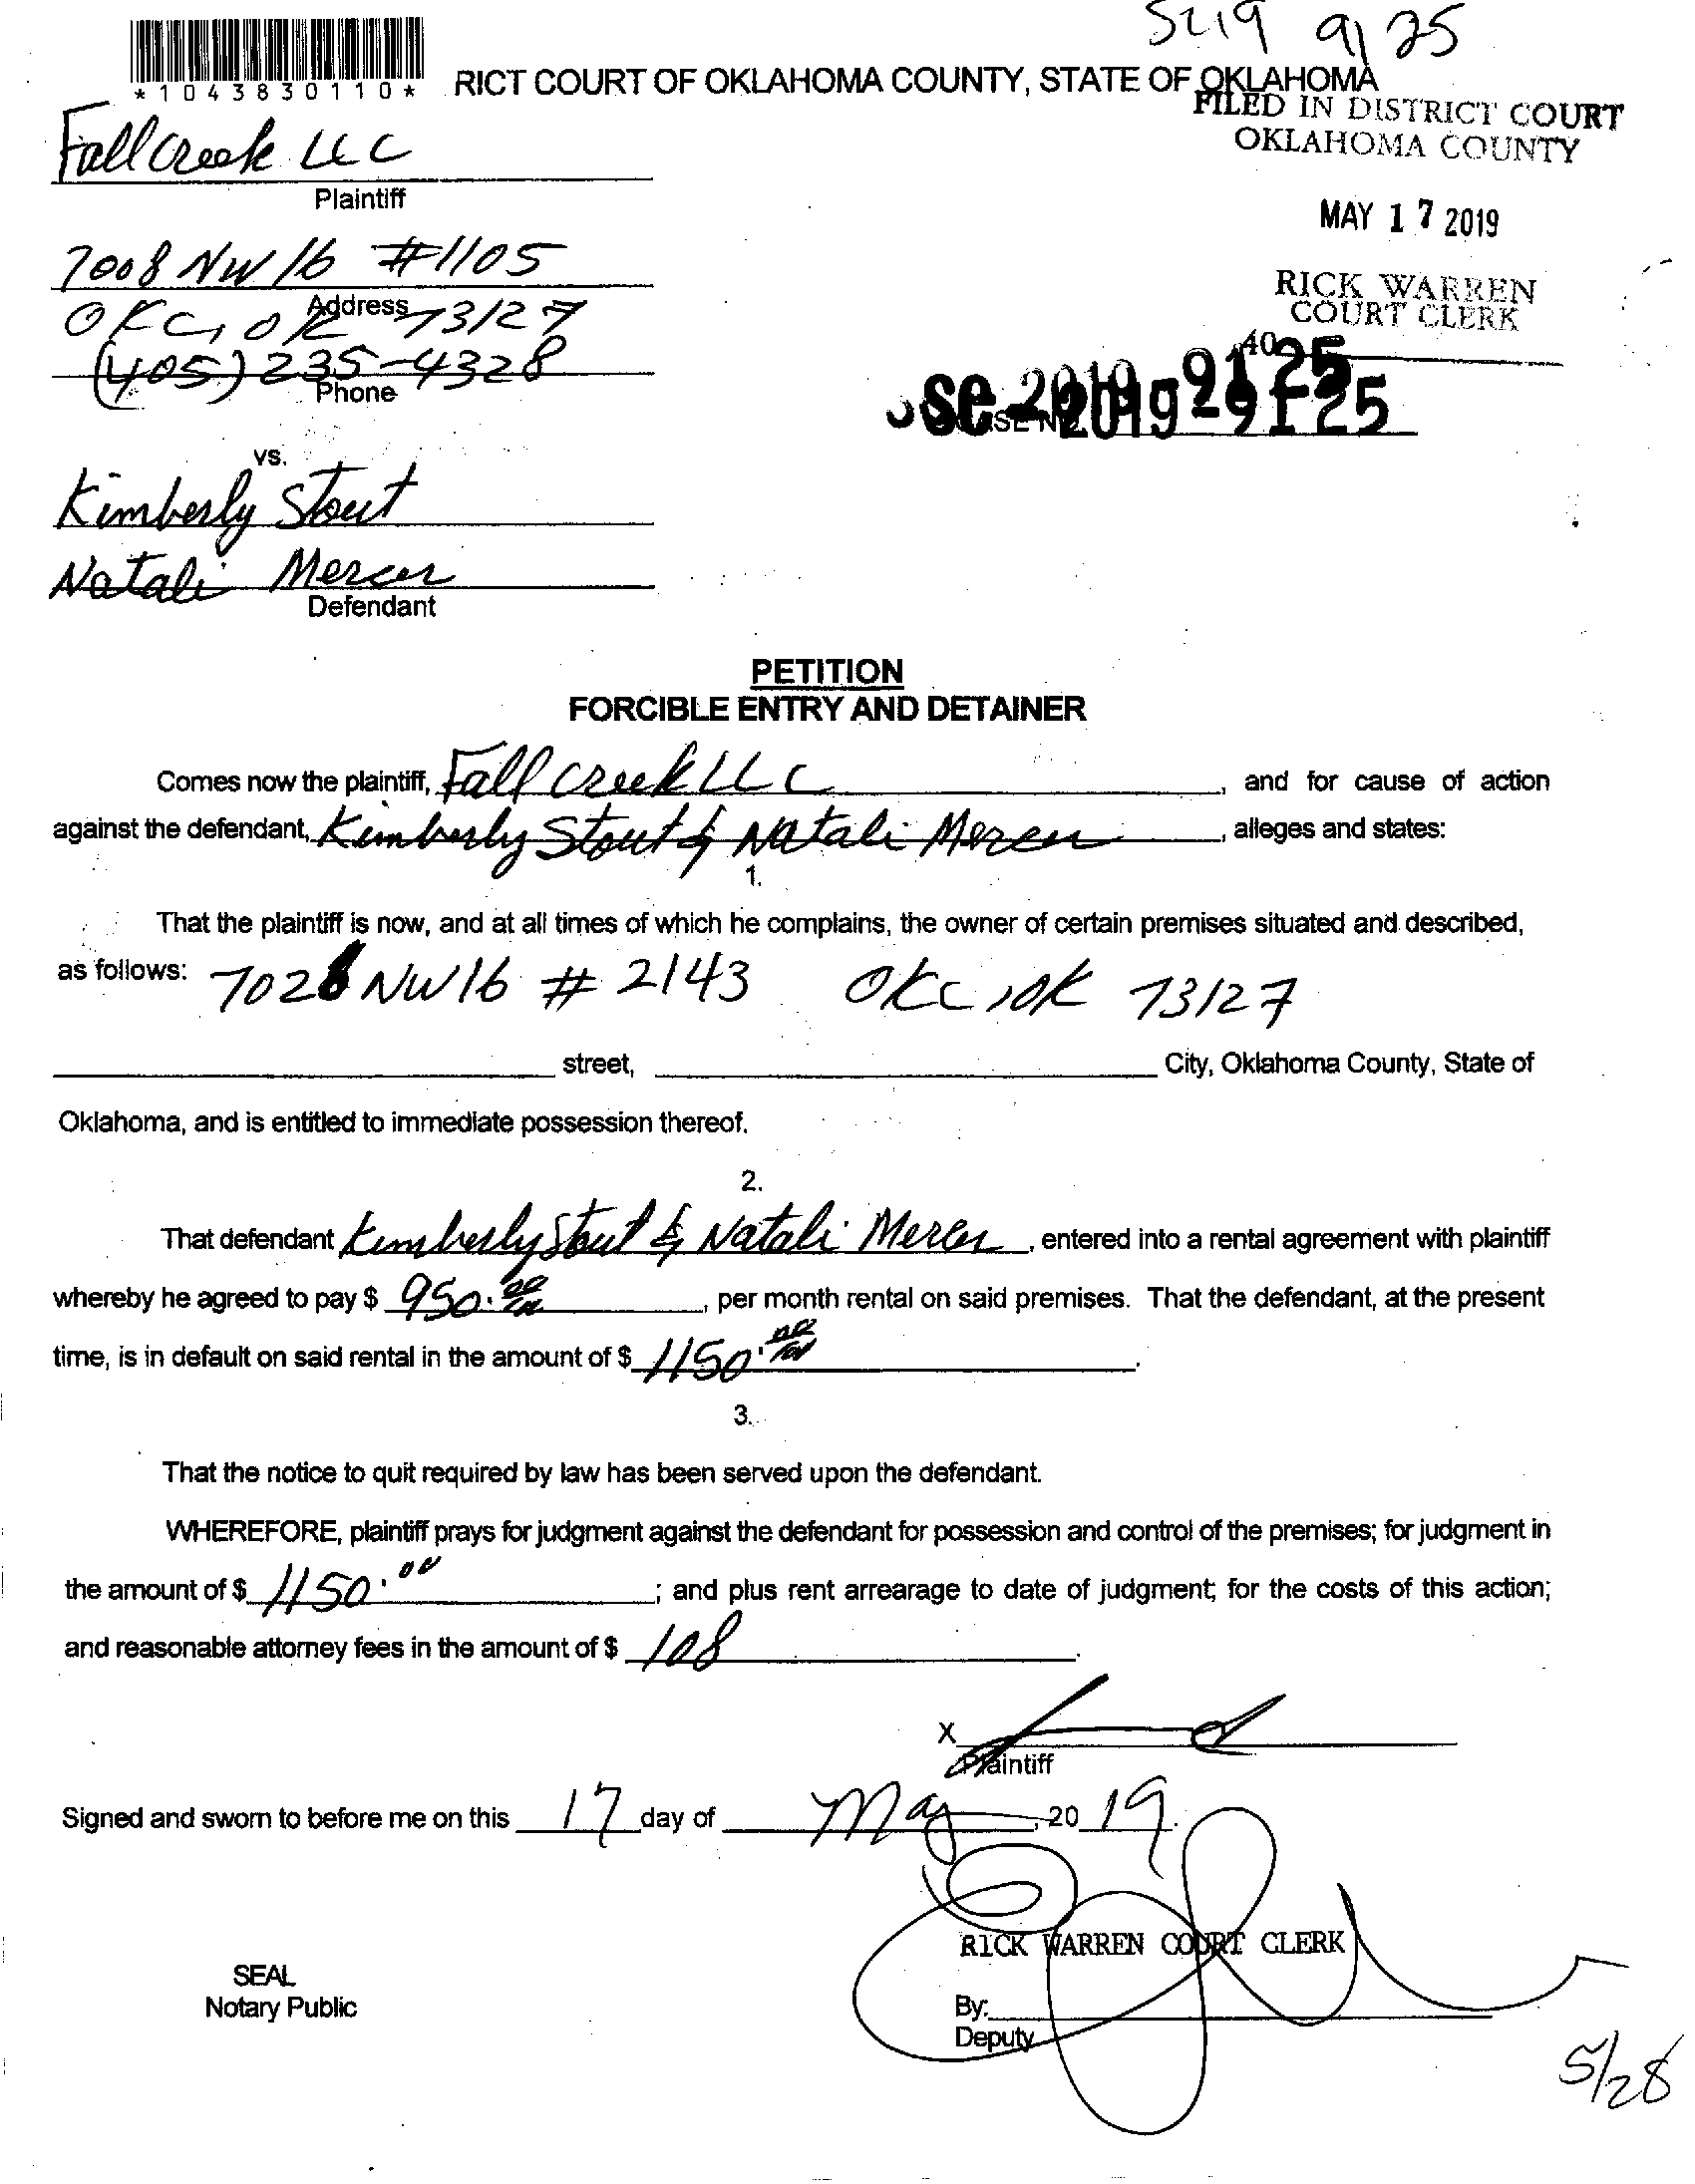 SC19 9125
*1043830110*
RICT COURT OF OKLAHOMA COUNTY, STATE OF OKLAHOMA
FILED IN DISTRICT COURT
OKLAHOMA COUNTY
Fall Creek LLC
Plaintiff
MAY 17 2019
7008 NW 16 #1105
Address
RICK WARREN
COURT CLERK
OKC, OK 73127
40
(405) 235-4328
Phone
SC 2019-9125
vs.
Kimberly Stout
Natali Mercer
Defendant
PETITION
FORCIBLE ENTRY AND DETAINER
Comes now the plaintiff, Fall Creek LLC, and for cause of action
against the defendant, Kimberly Stout & Natali Mercer, alleges and states:
1.
That the plaintiff is now, and at all times of which he complains, the owner of certain premises situated and described,
as follows: 7028 NW 16 # 2143 OKC, OK 73127
street, City, Oklahoma County, State of
Oklahoma, and is entitled to immediate possession thereof.
2.
That defendant Kimberly Stout & Natali Mercer, entered into a rental agreement with plaintiff
whereby he agreed to pay $ 950.00, per month rental on said premises. That the defendant, at the present
time, is in default on said rental in the amount of $ 1150.00.
3.
That the notice to quit required by law has been served upon the defendant.
WHEREFORE, plaintiff prays for judgment against the defendant for possession and control of the premises; for judgment in
the amount of $ 1150.00; and plus rent arrearage to date of judgment; for the costs of this action;
and reasonable attorney fees in the amount of $ 108.
X
Plaintiff
Signed and sworn to before me on this 17 day of May, 2019.
RICK WARREN COURT CLERK
SEAL
Notary Public
By:
Deputy
5/28